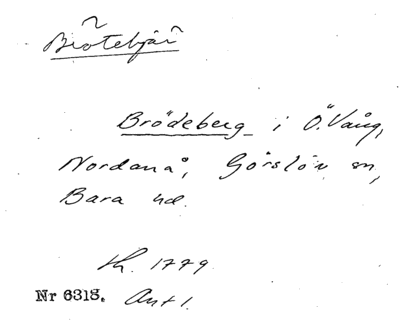 Brötebjär
Brödeberg i Ö. Vång,
Nordanå, Görslöv sn,
Bara hd.
Kh. 1779
Nr 6318. Ant 1.